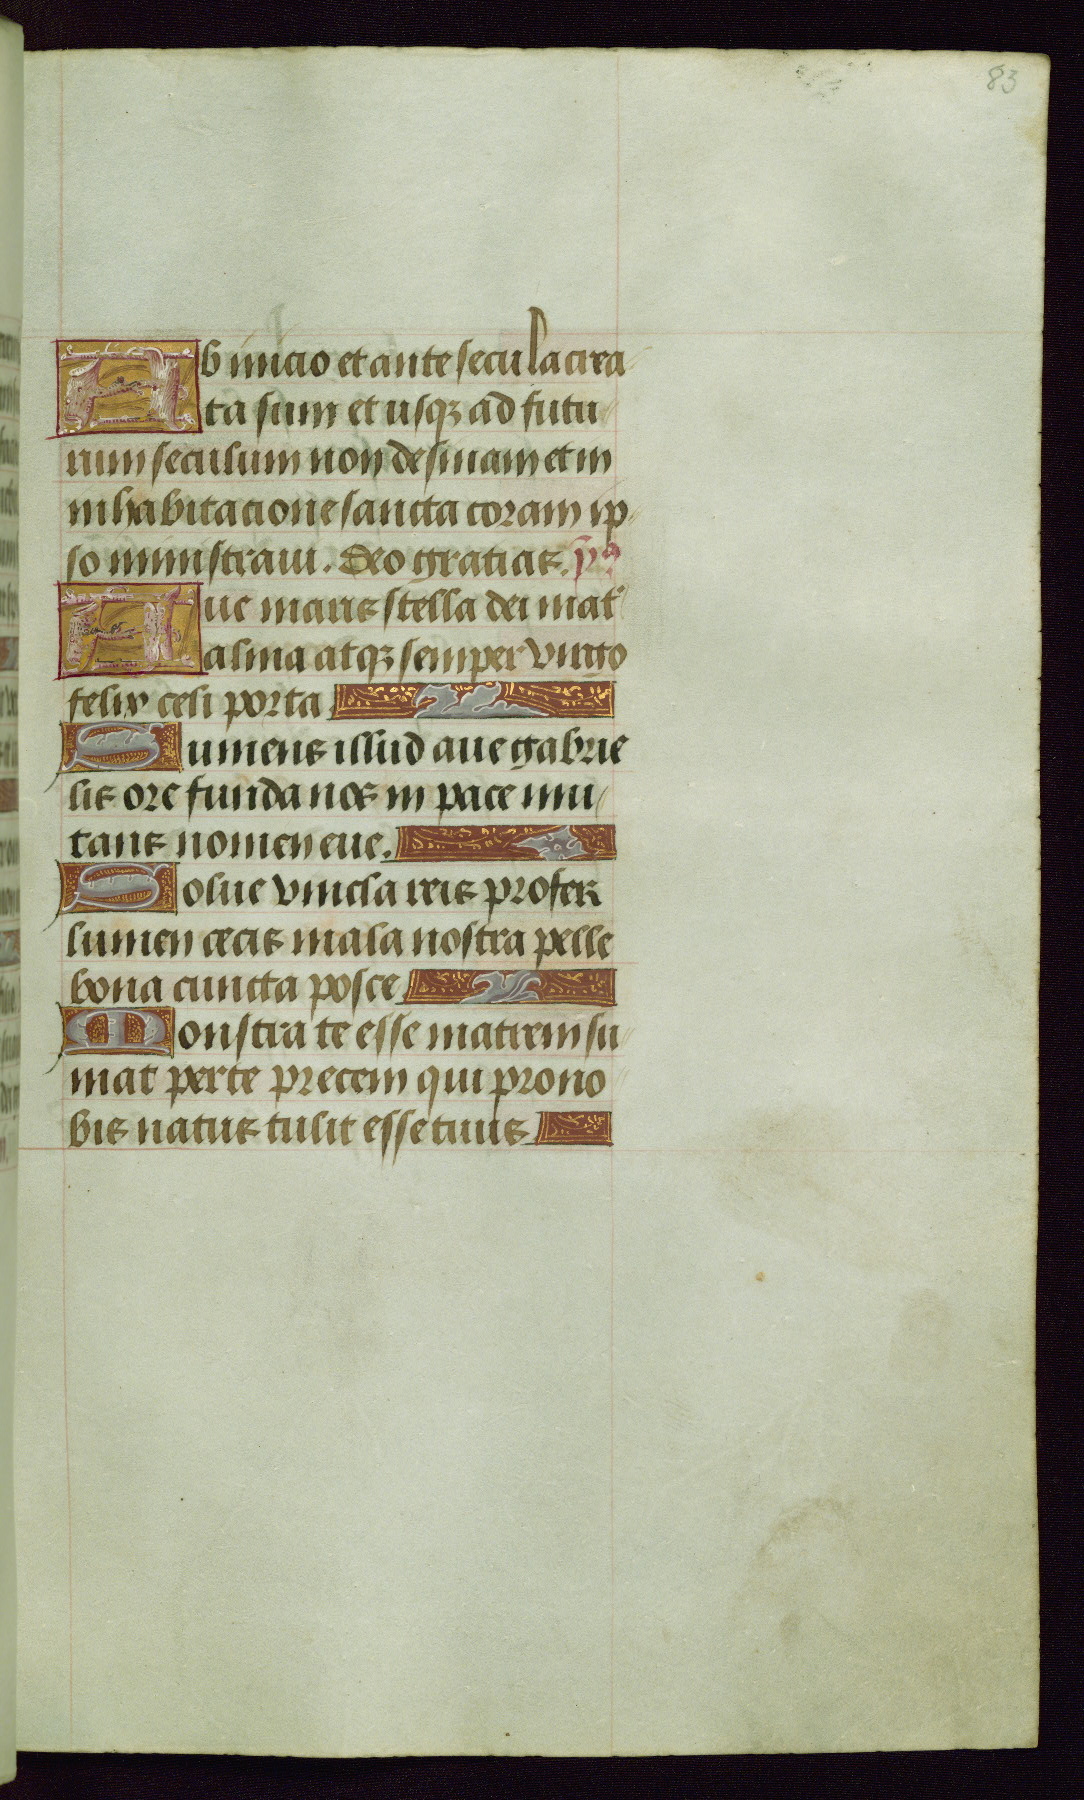 83
Ab inicio et ante secula crea
ta sum et usqꝫ ad futu
rum seculum non desinam et in
inhabitacione sancta coram ip
so ministraui. Deo gratias.
Aue maris stella dei mat᷑
alma atqꝫ semper virgo
felix celi porta
Sumens illud aue gabrie
lis ore funda nos in pace mu
tans nomen eue.
Solue vincla reis profer
lumen cecis mala nostra pelle
bona cuncta posce
Monstra te esse matrem su
mat per te precem qui pro no
bis natus tulit esse tuus